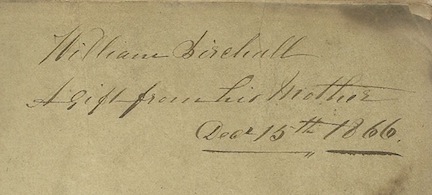 William Birchall
A Gift from his Mother
Decr 15th 1866.